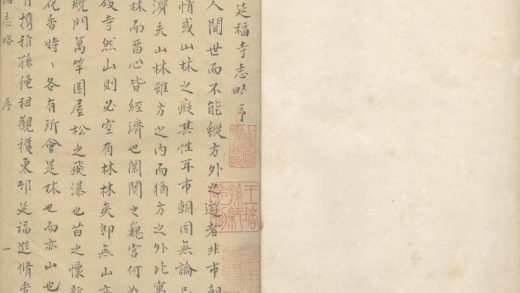 延福寺志略序
人間世而不能縱方外之遊者非市朝
情或山林之癡其性耳市朝固無論已
濟夫山林雖方之内而猶方之外此寓
林而晋心皆經濟也闤闠之巍宫何如
寺然山則必空有林林矣却無山亦
繞門萬竿園屋松之飛瀑也苗之懷新
花香時各有所會是林也而亦山也
有攜稚孫繩祖觀穫東邨延福道脩老
福志略 序 一